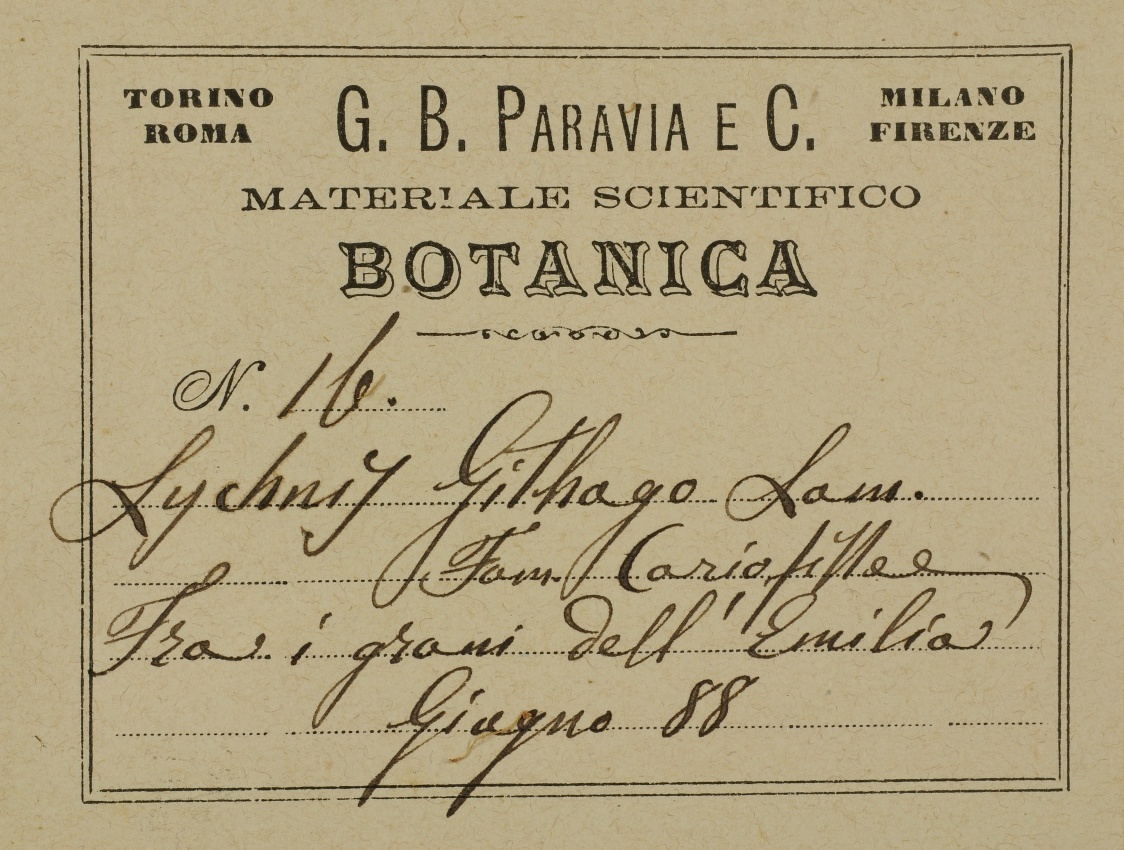 TORINO ROMA G. B. PARAVIA E C. MILANO FIRENZE
MATERIALE SCIENTIFICO
BOTANICA
N. 16.
Lychnis Githago Lam.
Fam. Cariofillee
Fra i grani dell'Emilia
Giugno 88